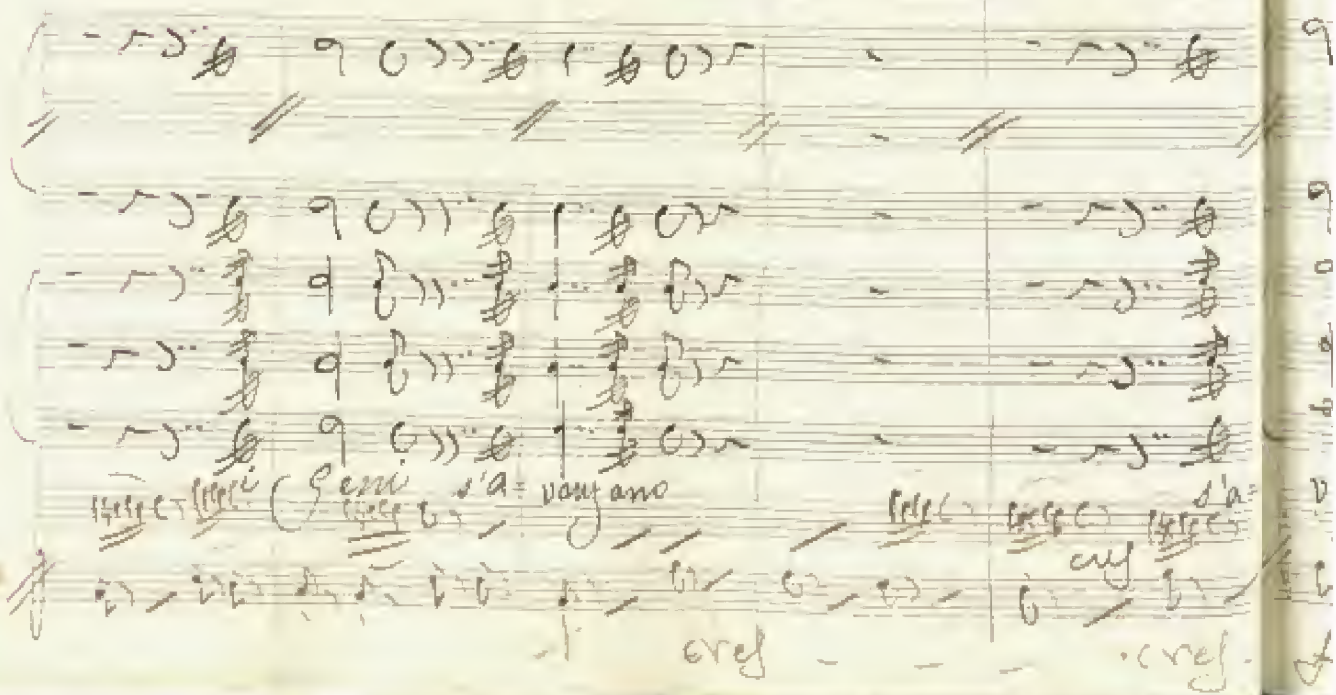 i Geni s'a= vanzano s'a=
cresc
cresc - - - cresc.